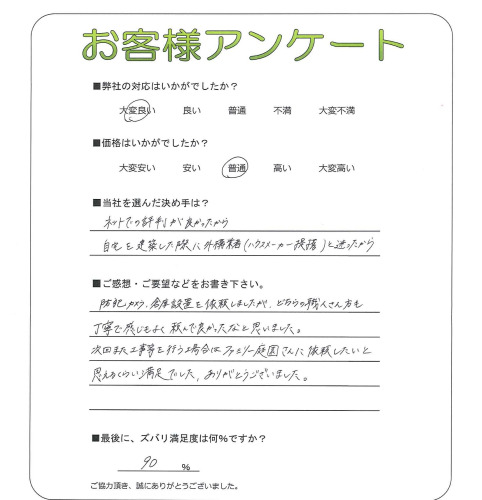 お客様アンケート
■弊社の対応はいかがでしたか？
大変良い 良い 普通 不満 大変不満
■価格はいかがでしたか？
大変安い 安い 普通 高い 大変高い
■当社を選んだ決め手は？
ネットでの評判が良かったから
自宅を建築した際に外構業者(ハウスメーカー提携)と迷ったから
■ご感想・ご要望などをお書き下さい。
防犯カメラ、倉庫設置を依頼しましたが、どちらの職人さん方も
丁寧で感じもよく頼んで良かったなと思いました。
次回また工事等を行う場合はファミリー庭園さんに依頼したいと
思えるくらい満足でした、ありがとうございました。
■最後に、ズバリ満足度は何%ですか？
90 %
ご協力頂き、誠にありがとうございました。